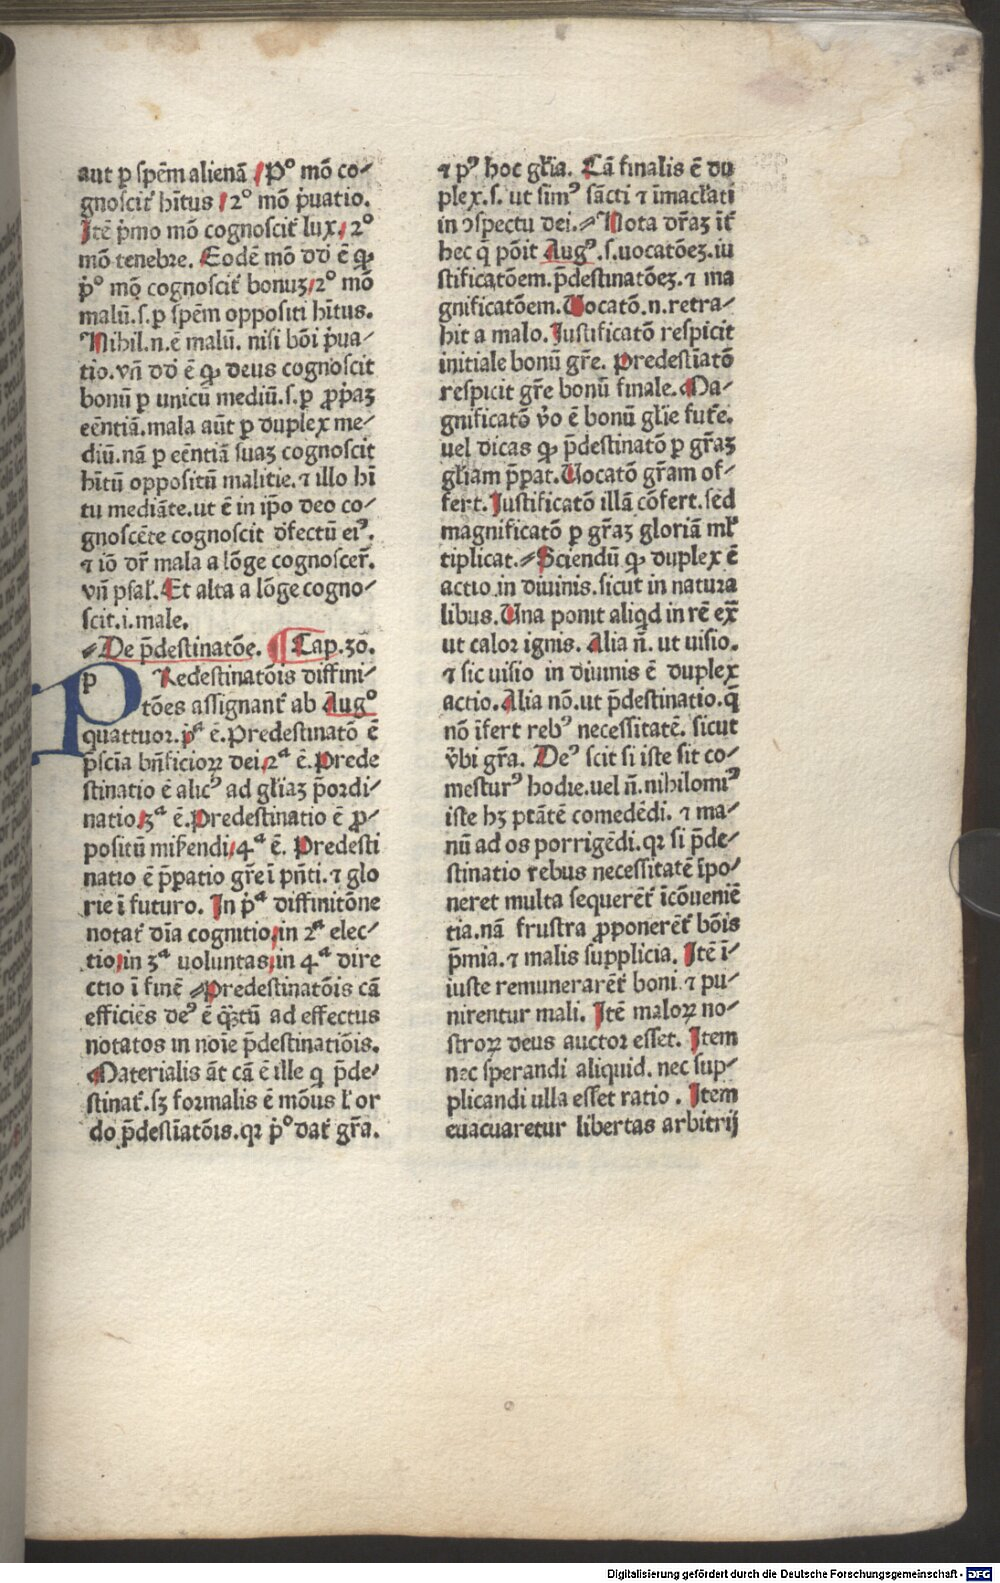 aut ꝑ spēm alienā P° mō co⸗
gnoscit᷑ hītus 2° mō p̍uatio.
Itē p̍mo mō cognoscit᷑ lux, 2°
mō tenebre. Eodē mō dd̄ ē ꝙ
p̍° mō cognoscit᷑ bonuꝫ, 2° mō
malū.s.ꝑ spēm oppositi hītus.
Nihil.n.ē malū. nisi bōi p̍ua⸗
tio.vn̄ dd̄ ē ꝙ deus cognoscit
bonū ꝑ unicū mediū.s.ꝑ ꝓp̍aꝫ
eēntiā.mala aūt ꝑ duplex me⸗
diū.nā ꝑ eēntiā suaꝫ cognoscit
hītū oppositū malitie.⁊ illo hī
tu mediāte.ut ē in ip̄o deo co⸗
gnoscēte cognoscit d̄fectū eiꝰ.
⁊ iō dr̄ mala a lōge cognoscer̄.
vn̄ psal̄. Et alta a lōge cogno⸗
scit.i.male.
⸗De p̄destinatōe. ¶ Cap.30.
p Redestinatōis diffini⸗
tōes assignant᷑ ab Aug°
quattuor.p̍ª ē.Predestinatō ē
p̄scīa bn̄ficioꝝ dei,2ª ē.Prede
stinatio ē alicꝰ ad gl̄iaꝫ p̄ordi⸗
natio,3ª ē.Predestinatio ē ꝓ⸗
positū miẜendi,4ª ē. Predesti
natio ē p̄ꝑatio gr̄e ī pn̄ti.⁊ glo
rie ī futuro. In p̍ª diffinitōne
notat᷑ dīa cognitio,in 2ª elec⸗
tio,in 3ª voluntas,in 4ª dire
ctio ī finē ⸗Predestinatōis cā
efficiēs deꝰ ē q̄ꝫtū ad effectus
notatos in noīe p̄destinatiōis.
Materialis āt cā ē ille q p̄de⸗
stinat᷑.sꝫ formalis ē mōus ł or
do p̄destīatōis.qꝛ p̍° dat᷑ gr̄a.
⁊ pꝰ hoc gl̄ia. Cā finalis ē du
plex.s. ut simꝰ sācti ⁊ īmacl̄ati
in ↄspectu dei.⸗Nota dr̄aꝫ īt᷑
hec q̄ pōit Augꝰ.s.uocatōeꝫ.iu
stificatōem.p̄destinatōeꝫ.⁊ ma
gnificatōem.Uocatō.n.retra⸗
hit a malo.Iustificatō respicit
initiale bonū gr̄e. Predestīatō
respicit gr̄e bonū finale.Ma⸗
gnificatō v̄o ē bonū gl̄ie fut᷑e.
uel dicas ꝙ p̄destinatō ꝑ gr̄aꝫ
gl̄iam p̄ꝑat.Uocatō gr̄am of⸗
fert.Iustificatō illā cōfert.sed
magnificatō ꝑ gr̄aꝫ gloriā ml̄
tiplicat.⸗Sciendū ꝙ duplex ē
actio in diuinis.sicut in natura
libus.Una ponit aliqd in rē ex̄
ut calor ignis. Alia n̄. ut uisio.
⁊ sic uisio in diuinis ē duplex
actio.Alia nō.ut p̄destinatio.q̄
nō īfert rebꝰ necessitatē. sicut
v̄bi gr̄a. Deꝰ scit si iste sit co⸗
mesturꝰ hodie.uel n̄.nihilomiꝰ
iste hꝫ ptātē comedēdi. ⁊ ma⸗
nū ad os porrigēdi.qꝛ si p̄de⸗
stinatio rebus necessitatē īpo⸗
neret multa sequerēt᷑ īcōueniē
tia.nā frustra ꝓponerēt᷑ bōis
p̄mia.⁊ malis supplicia. Itē ī⸗
iuste remunerarēt᷑ boni ⁊ pu⸗
nirentur mali. Itē maloꝝ no⸗
stroꝝ deus auctor esset. Item
nec sperandi aliquid. nec sup⸗
plicandi ulla esset ratio . Item
euacuaretur libertas arbitrij
Digitalisierung gefördert durch die Deutsche Forschungsgemeinschaft - DFG